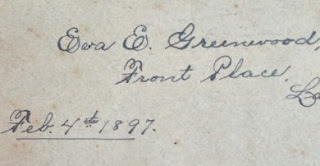 Eva E. Greenwood,
Front Place.
Feb. 4th 1897.